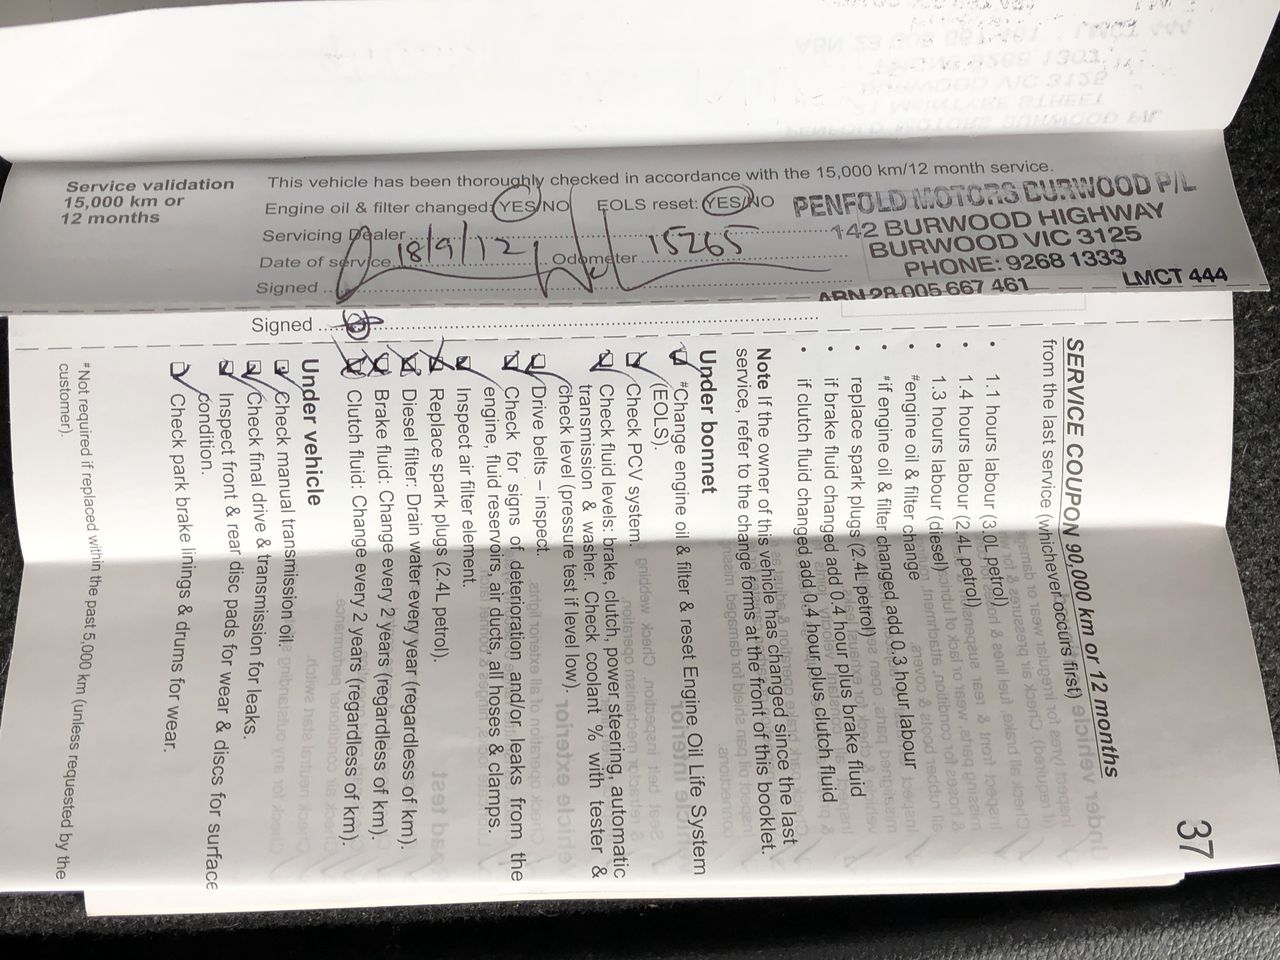 Service validation
15,000 km or
12 months
This vehicle has been thoroughly checked in accordance with the 15,000 km/12 month service.
Engine oil & filter changed: YES/NO EOLS reset: YES/NO
Servicing Dealer
Date of service 18/9/12 Odometer 15265
Signed
PENFOLD MOTORS BURWOOD P/L
142 BURWOOD HIGHWAY
BURWOOD VIC 3125
PHONE: 9268 1333
LMCT 444
ABN 28 005 667 461
Signed
37
SERVICE COUPON 90,000 km or 12 months
from the last service (whichever occurs first)
• 1.1 hours labour (3.0L petrol)
• 1.4 hours labour (2.4L petrol)
• 1.3 hours labour (diesel)
• #engine oil & filter change
• #if engine oil & filter changed add 0.3 hour labour
• replace spark plugs (2.4L petrol)
• if brake fluid changed add 0.4 hour plus brake fluid
• if clutch fluid changed add 0.4 hour plus clutch fluid
Note If the owner of this vehicle has changed since the last
service, refer to the change forms at the front of this booklet.
Under bonnet
#Change engine oil & filter & reset Engine Oil Life System
(EOLS).
Check PCV system.
Check fluid levels: brake, clutch, power steering, automatic
transmission & washer. Check coolant % with tester &
check level (pressure test if level low).
Drive belts – inspect.
Check for signs of deterioration and/or leaks from the
engine, fluid reservoirs, air ducts, all hoses & clamps.
Inspect air filter element.
Replace spark plugs (2.4L petrol).
Diesel filter: Drain water every year (regardless of km).
Brake fluid: Change every 2 years (regardless of km).
Clutch fluid: Change every 2 years (regardless of km).
Under vehicle
Check manual transmission oil.
Check final drive & transmission for leaks.
Inspect front & rear disc pads for wear & discs for surface
condition.
Check park brake linings & drums for wear.
#Not required if replaced within the past 5,000 km (unless requested by the
customer).